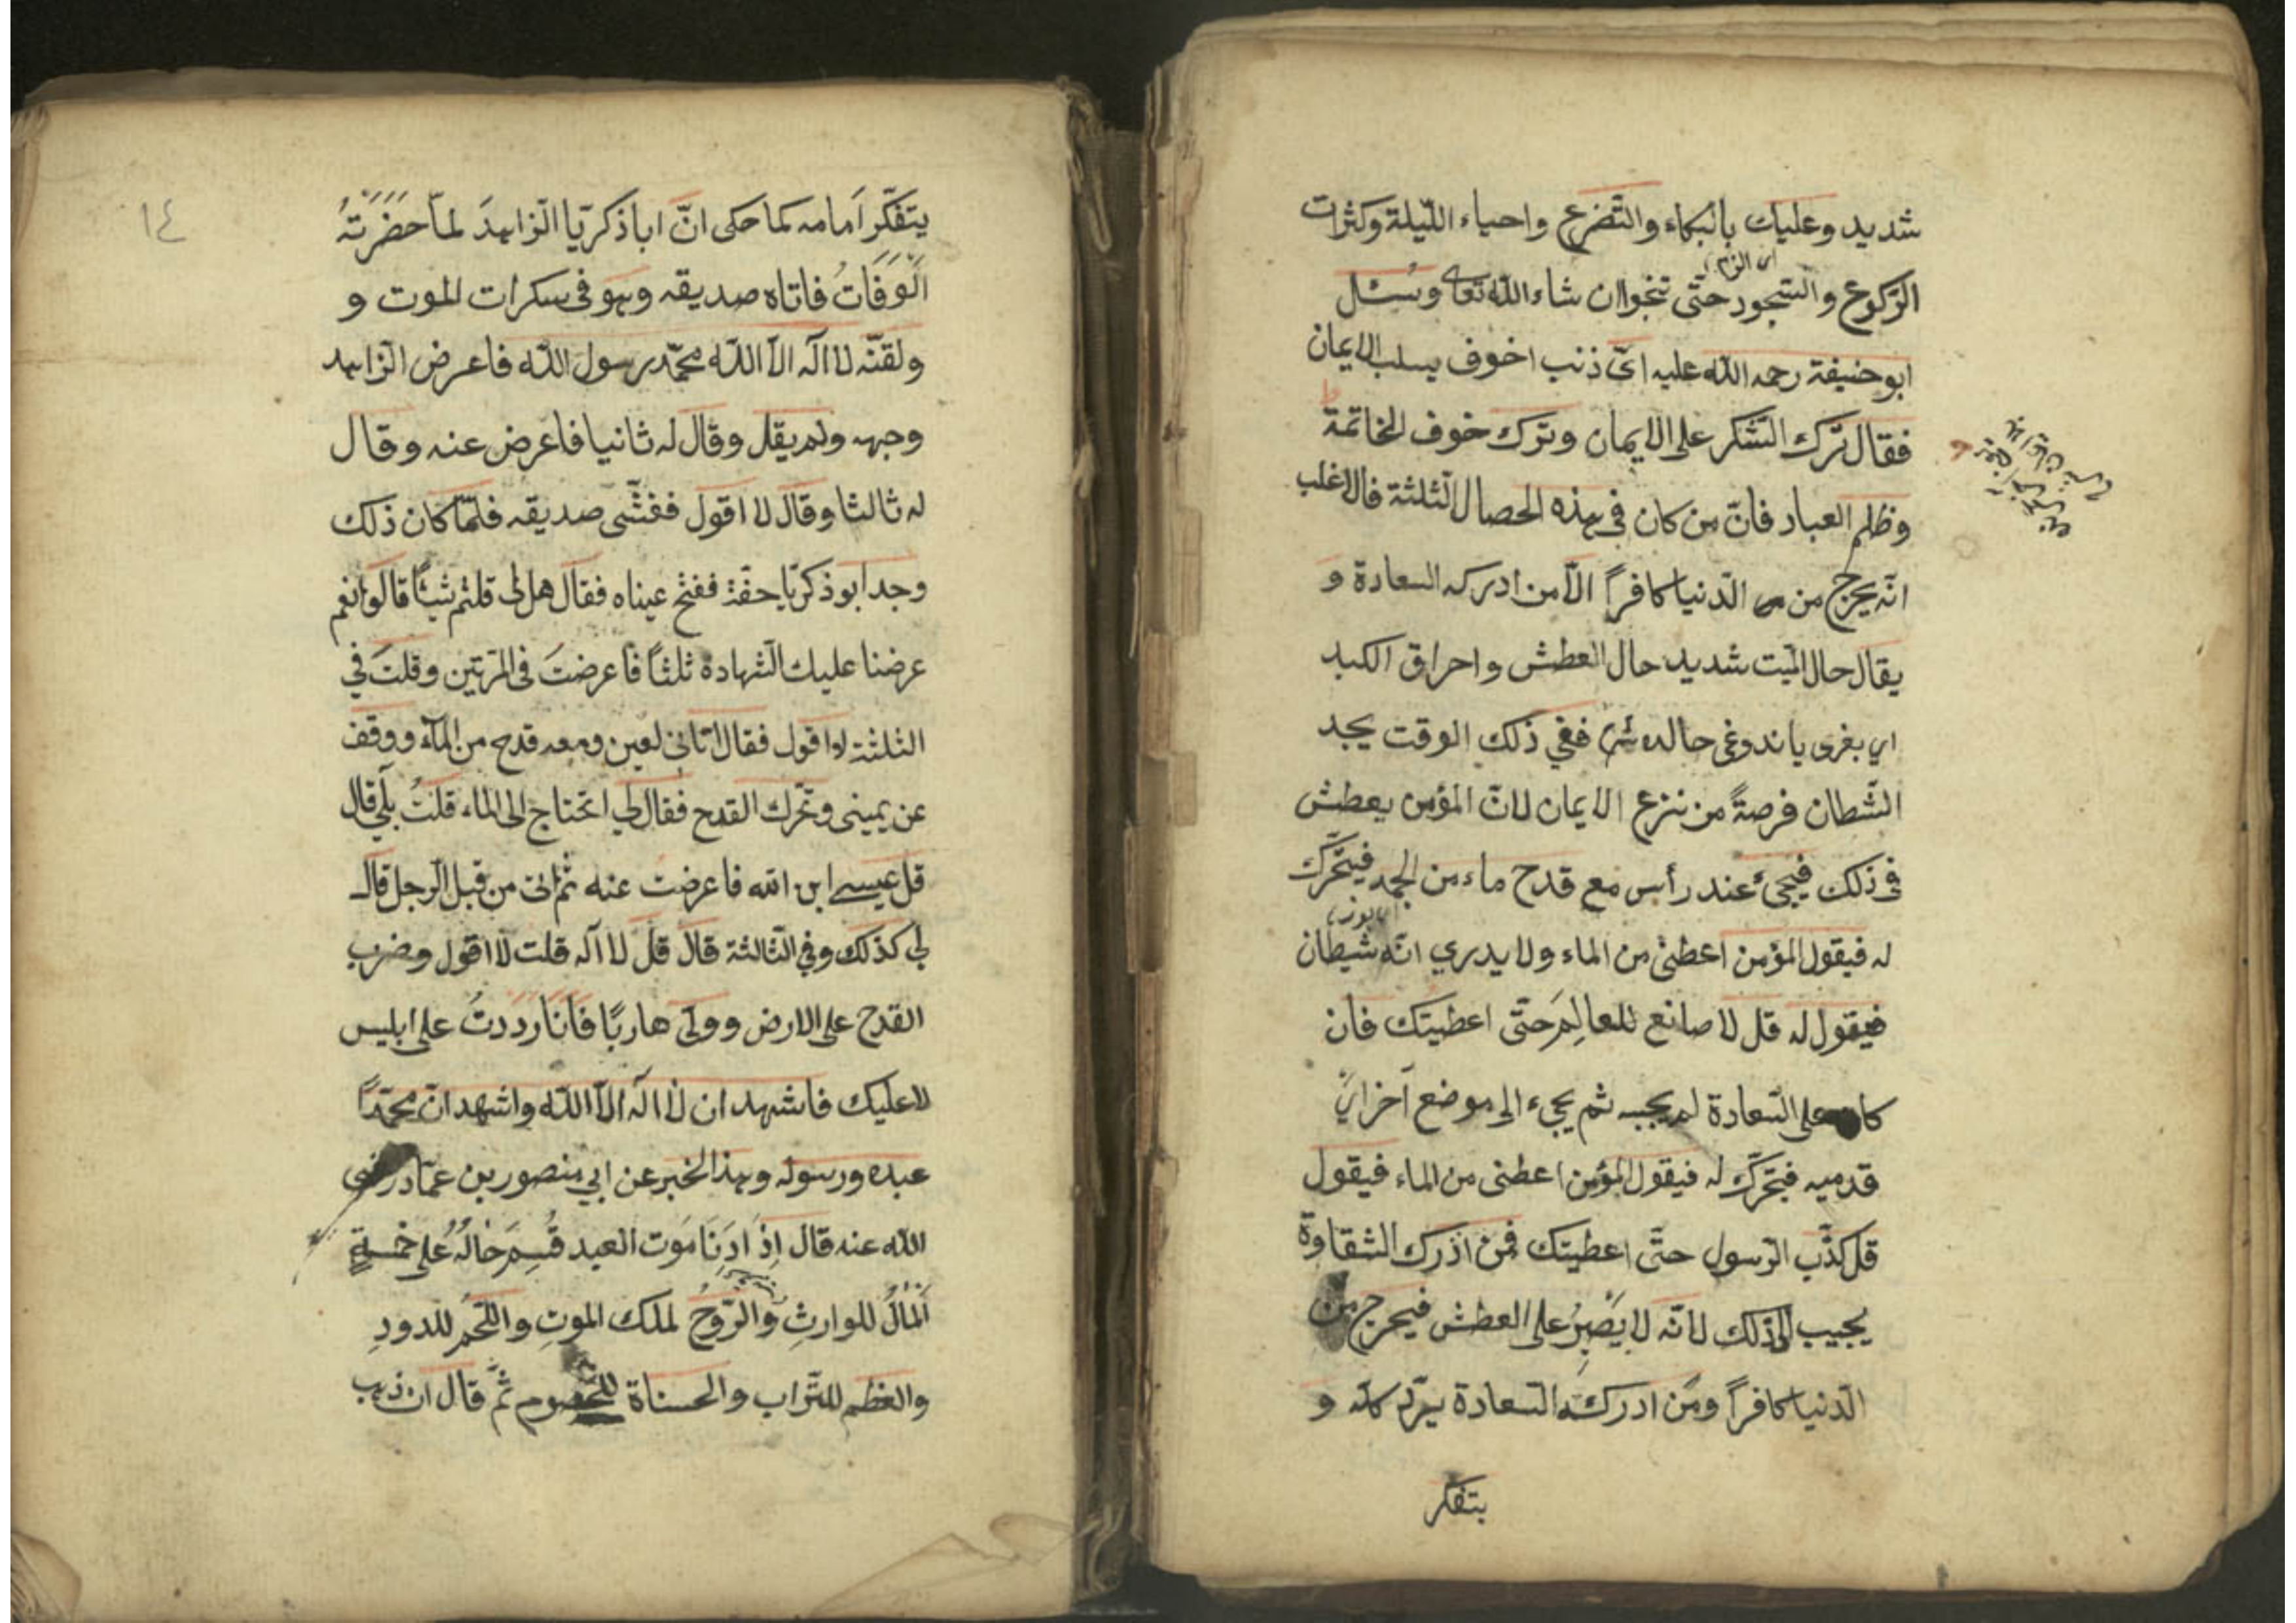 شديد وعليك بالبكاء والتّضرع واحياء اللّيلة وكثرات
اى الزم
الرّكوع والسّجود حتّى تنجوا ان شاء اللّه تعالى وسئل
ابو حنيفة رحمه اللّه عليه اىّ ذنب اخوف يسلب الايمان
فقال ترك الشّكر على الايمان وترك خوف الخاتمة
وظلم العباد فانّ من كان فى هذه الحصال الثّلثة فالاغلب
انّه يخرج من الدّنيا كافراً الاّ من ادركه السعادة و
يقال حال الميّت شديد حال العطش واحراق الكبد
اى بغرى ياندوغى حالده ففي ذلك الوقت يجد
الشّطان فرصةً من نزع الايمان لانّ المؤمن يعطش
فى ذلك فيجىء عند رأس مع قدح ماء من الجمد فيتحرّك
اى بوز
له فيقول المؤمن اعطنى من الماء ولا يدري انّه شيطان
فيقول له قل لا صانع للعالِمَ حتّى اعطيتك فان
كان على السّعادة لم يجبه ثم يجىء الى موضع آخر اىْ
قدميه فيتحرّك له فيقول المؤمن اعطنى من الماء فيقول
قل كذّب الرّسول حتّى اعطيتك فمن ادرك الشقاوة
يجيب الى ذلك لانّه لا يَصْبِرُ على العطش فيخرج من
الدّنيا كافراً ومن ادركته السّعادة يردّ كلامه و
يتفكر
١٤
يتفكّر اَمامه كما حكى انّ اباذكريّا الزّاهدَ لمّا حَضَرَتْهُ
الَوَفَاتُ فاتاه صديقه وهو فى سكرات الموت و
ولقنّه لا اله الاّ اللّه محمّد رسول اللّه فاعرض الزّاهد
وجهه ولم يقل وقال له ثانيا فاعرض عنه وقال
له ثالثا وقال لا اقول فغشّى صديقه فلمّا كان ذلك
وجد ابو ذكريّا حفّة ففتح عيناه فقال هل لى قلتم شيئًا قالوا نعم
عرضنا عليك الشّهادة ثلثاً فاعرضتَ فى المرّتين وقلتَ في
الثلثة لا اقول فقال اتانى لعين ومعه قدح من المآء ووقف
عن يمينى وتحرك القدح فقال لي اتحتاج الى الماء قلتُ بلى قال
قل عيسى ابن اللّه فاعرضت عنه ثم اتى من قبل الرّجل قال
لي كذلك وفي الثّالثة قال قل لا اله قلت لا اقول وضرب
القدح على الارض وولّى هاربًا فاَنَا رَدَدتُ على ابليس
لا عليك فاشهد ان لا اله الاّ اللّه واشهد انّ محمّدًا
عبده ورسوله وهذا الخبر عن ابي منصور بن عمّاد رضى
اللّه عنه قال اِذَا دَنَا مَوت العبد قُسِمَ حالُهُ على خمسةٍ
اَلمْاَلُ للوارثِ وَالرّوحُ لملك الموتِ واللّحمُ للدودِ
والعظم للتّراب والحسناة للخصوم ثمّ قال ان ذهب